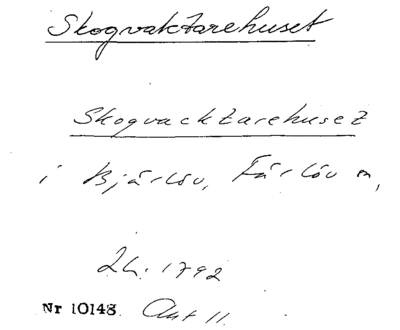 Skogvaktarehuset
Skogvacktarehuset
i Bjärlöv, Färlöv sn,
Lh. 1792
Nr 10148. Akt 11.